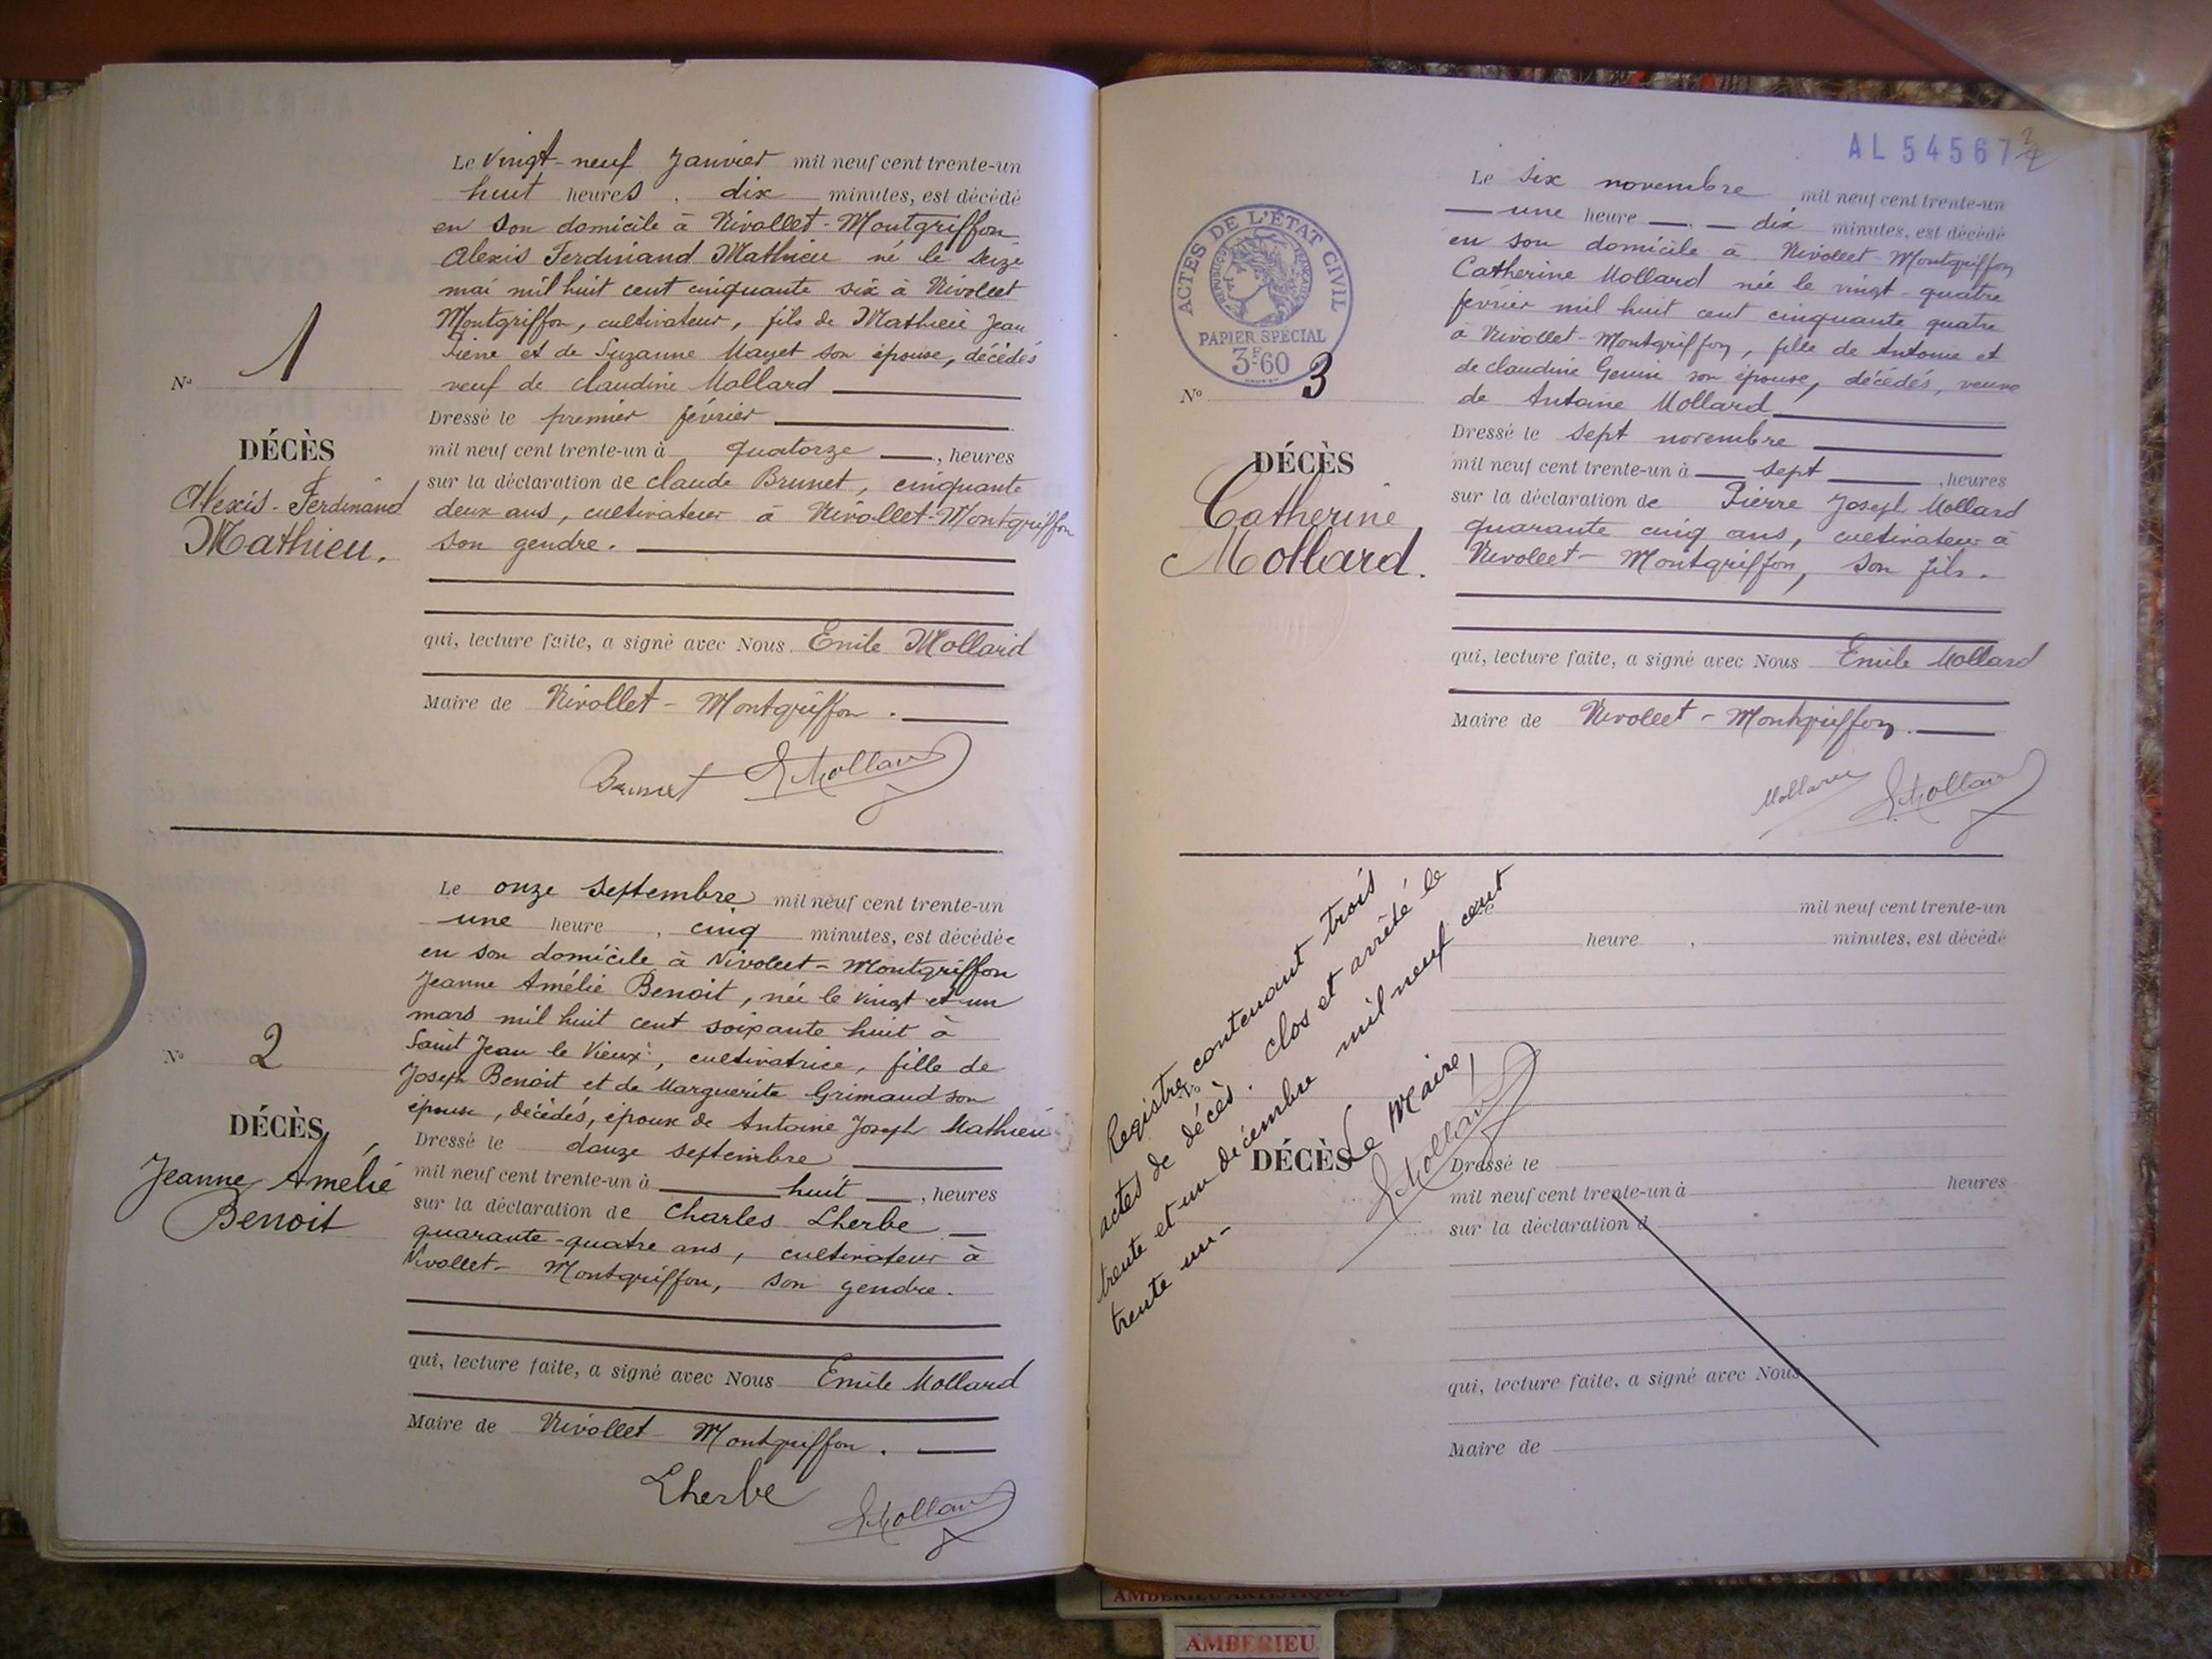 Le vingt-neuf Janvier mil neuf cent trente-un
huit heures, dix minutes, est décédé
en son domicile à Nivollet-Montgriffon
Alexis Ferdinand Mathieu né le seize
mai mil huit cent cinquante six à Nivollet
Montgriffon, cultivateur, fils de Mathieu Jean
Pierre et de Suzanne Mayet son épouse, décédés
veuf de Claudine Mollard
Dressé le premier février
mil neuf cent trente-un à quatorze, heures
sur la déclaration de Claude Brunet, cinquante
deux ans, cultivateur à Nivollet-Montgriffon
son gendre.
qui, lecture faite, a signé avec Nous Emile Mollard
Maire de Nivollet-Montgriffon.
Brunet EMollard
No 1
DÉCÈS
Alexis-Ferdinand
Mathieu.
Le onze septembre mil neuf cent trente-un
une heure, cinq minutes, est décédée
en son domicile à Nivollet-Montgriffon
Jeanne Amélie Benoit, née le vingt et un
mars mil huit cent soixante huit à
Saint Jean le Vieux, cultivatrice, fille de
Joseph Benoit et de Marguerite Grimaud son
épouse, décédés, épouse de Antoine Joseph Mathieu
Dressé le douze septembre
mil neuf cent trente-un à huit, heures
sur la déclaration de Charles Lherbe
quarante-quatre ans, cultivateur à
Nivollet-Montgriffon, son gendre.
qui, lecture faite, a signé avec Nous Emile Mollard
Maire de Nivollet Montgriffon.
Lherbe EMollard
No 2
DÉCÈS
Jeanne Amélie
Benoit
AL 54567
ACTES DE L'ÉTAT CIVIL
RÉPUBLIQUE FRANÇAISE
PAPIER SPÉCIAL
3F60
No 3
DÉCÈS
Catherine
Mollard.
Le six novembre mil neuf cent trente-un
une heure dix minutes, est décédé
en son domicile à Nivollet-Montgriffon
Catherine Mollard née le vingt-quatre
février mil huit cent cinquante quatre
à Nivollet-Montgriffon, fille de Antoine et
de Claudine Genin son épouse, décédés, veuve
de Antoine Mollard
Dressé le sept novembre
mil neuf cent trente-un à sept, heures
sur la déclaration de Pierre Joseph Mollard
quarante cinq ans, cultivateur à
Nivollet-Montgriffon, son fils.
qui, lecture faite, a signé avec Nous Emile Mollard
Maire de Nivollet-Montgriffon.
Mollard EMollard
Registre contenant trois
actes de décès. Clos et arrêté le
trente et un décembre mil neuf cent
trente un-
Le Maire,
EMollard
No
DÉCÈS
Le mil neuf cent trente-un
heure, minutes, est décédé
Dressé le
mil neuf cent trente-un à heures
sur la déclaration d
qui, lecture faite, a signé avec Nous
Maire de
AMBERIEU ARTISTIQUE
AMBERIEU